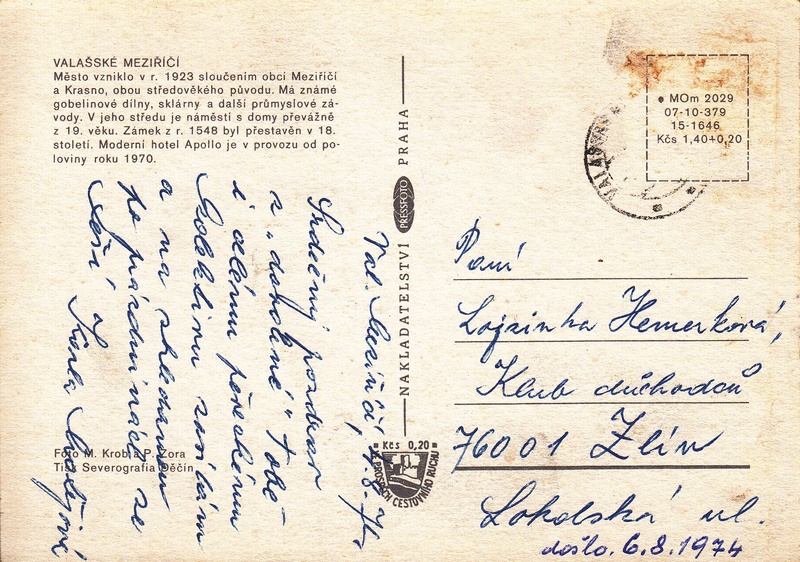 VALAŠSKÉ MEZIŘÍČÍ
Město vzniklo v r. 1923 sloučením obcí Meziříčí
a Krasno, obou středověkého původu. Má známé
gobelinové dílny, sklárny a další průmyslové zá-
vody. V jeho středu je náměstí s domy převážně
z 19. věku. Zámek z r. 1548 byl přestavěn v 18.
století. Moderní hotel Apollo je v provozu od po-
loviny roku 1970.
Val. Meziříčí, 4.8.74
Srdečný pozdrav
z „dovolené" Tobě
i celému
zasílám
a na shledanou
po prázdninách se
těší
Foto M. Krob a P. Zora
Tisk Severografia Děčín
NAKLADATELSTVÍ PRESSFOTO PRAHA
Kčs 0,20
VE PROSPĚCH CESTOVNÍHO RUCHU
MOm 2029
07-10-379
15-1646
Kčs 1,40+0,20
VALAŠSKÉ
Paní
Lojzinka Hemerková,
Klub důchodců
76001 Zlín
Lokolská ul.
došlo 6.8.1974